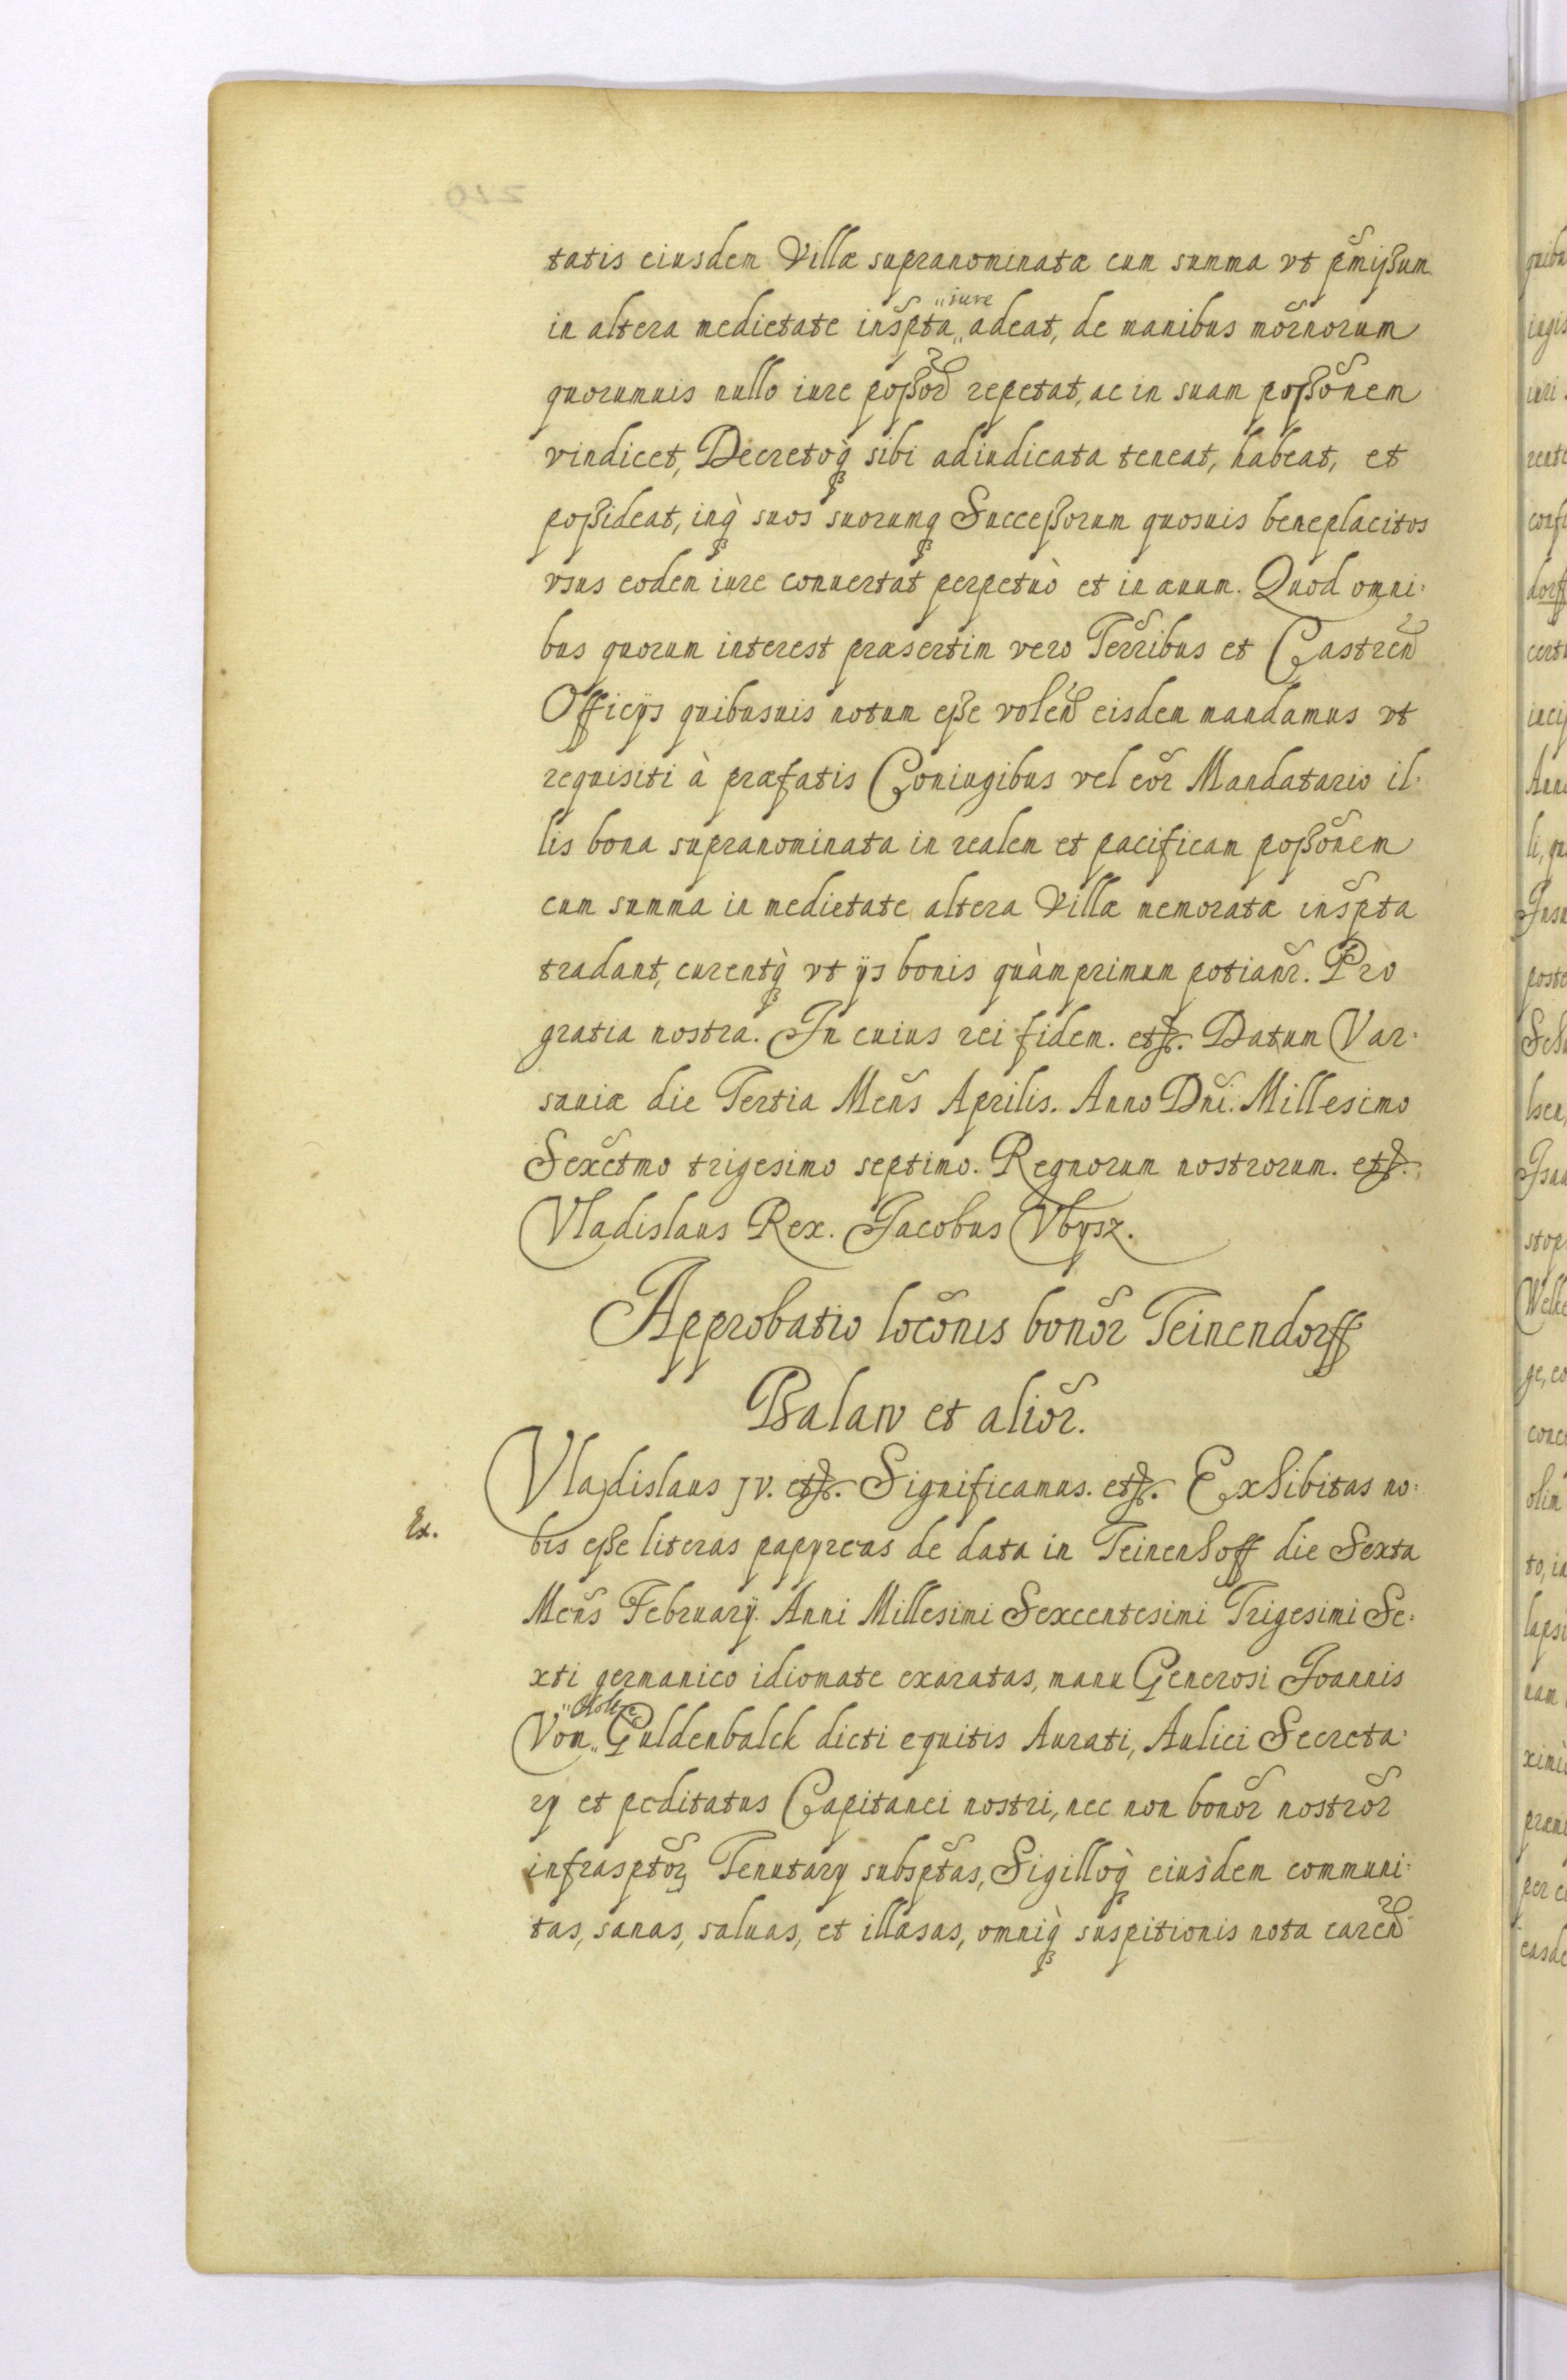 tatis eiusdem Villæ supranominatæ cum summa vt p̃mißum
in altera medietate insp̃ta „iure„ adeat, de manibus mõrnorum
quorumuis nullo iure poßõd repetat, ac in suam poßõnem
vindicet, Decretoq̀ sibi adiudicata teneat, habeat, et
poßideat, inq̀ suos suorumq Succeßorum quosuis beneplacitos
vsus eodem iure conuertat perpetuò et in æuum. Quod omni:
bus quorum interest præsertim vero Terr̃ibus et Castreñ
Officÿs quibusuis notum eße voleñ eisdem mandamus vt
requisiti à præfatis Coniugibus vel eõr Mandatario il:
lis bona supranominata in realem et pacificam poßõnem
cum summa in medietate altera Villæ memoratæ insp̃ta
tradant, curentq̀ vt ÿs bonis quàm primum potiañr. Pro
gratia nostra. In cuius rei fidem. etc. Datum Var:
sauiæ die Tertia Meñs Aprilis. Anno Dñi. Millesimo
Sexc̃tmo trigesimo septimo. Regnorum nostrorum. etc.
Vladislaus Rex. Jacobus Vbysz.
Approbatio locõnis bonõr Teinendorff
Balaw et aliõr.
Vladislaus JV. etc. Significamus. etc. Exhibitas no:
Ex.
bis eße literas papyreas de data in Teinenhoff die Sexta
Meñs Februarÿ. Anni Millesimi Sexcentesimi Trigesimi Se:
xti germanico idiomate exaratas, manu Generosi Joannis
Von „Holtze„ Guldenbalck dicti equitis Aurati, Aulici Secreta:
rÿ et peditatus Capitanei nostri, nec non bonõr nostrõr
infrasptõrz Tenutarÿ subsp̃tas, Sigilloq̀ eiusdem communi:
tas, sanas, saluas, et illæsas, omniq̀ suspitionis nota careñ